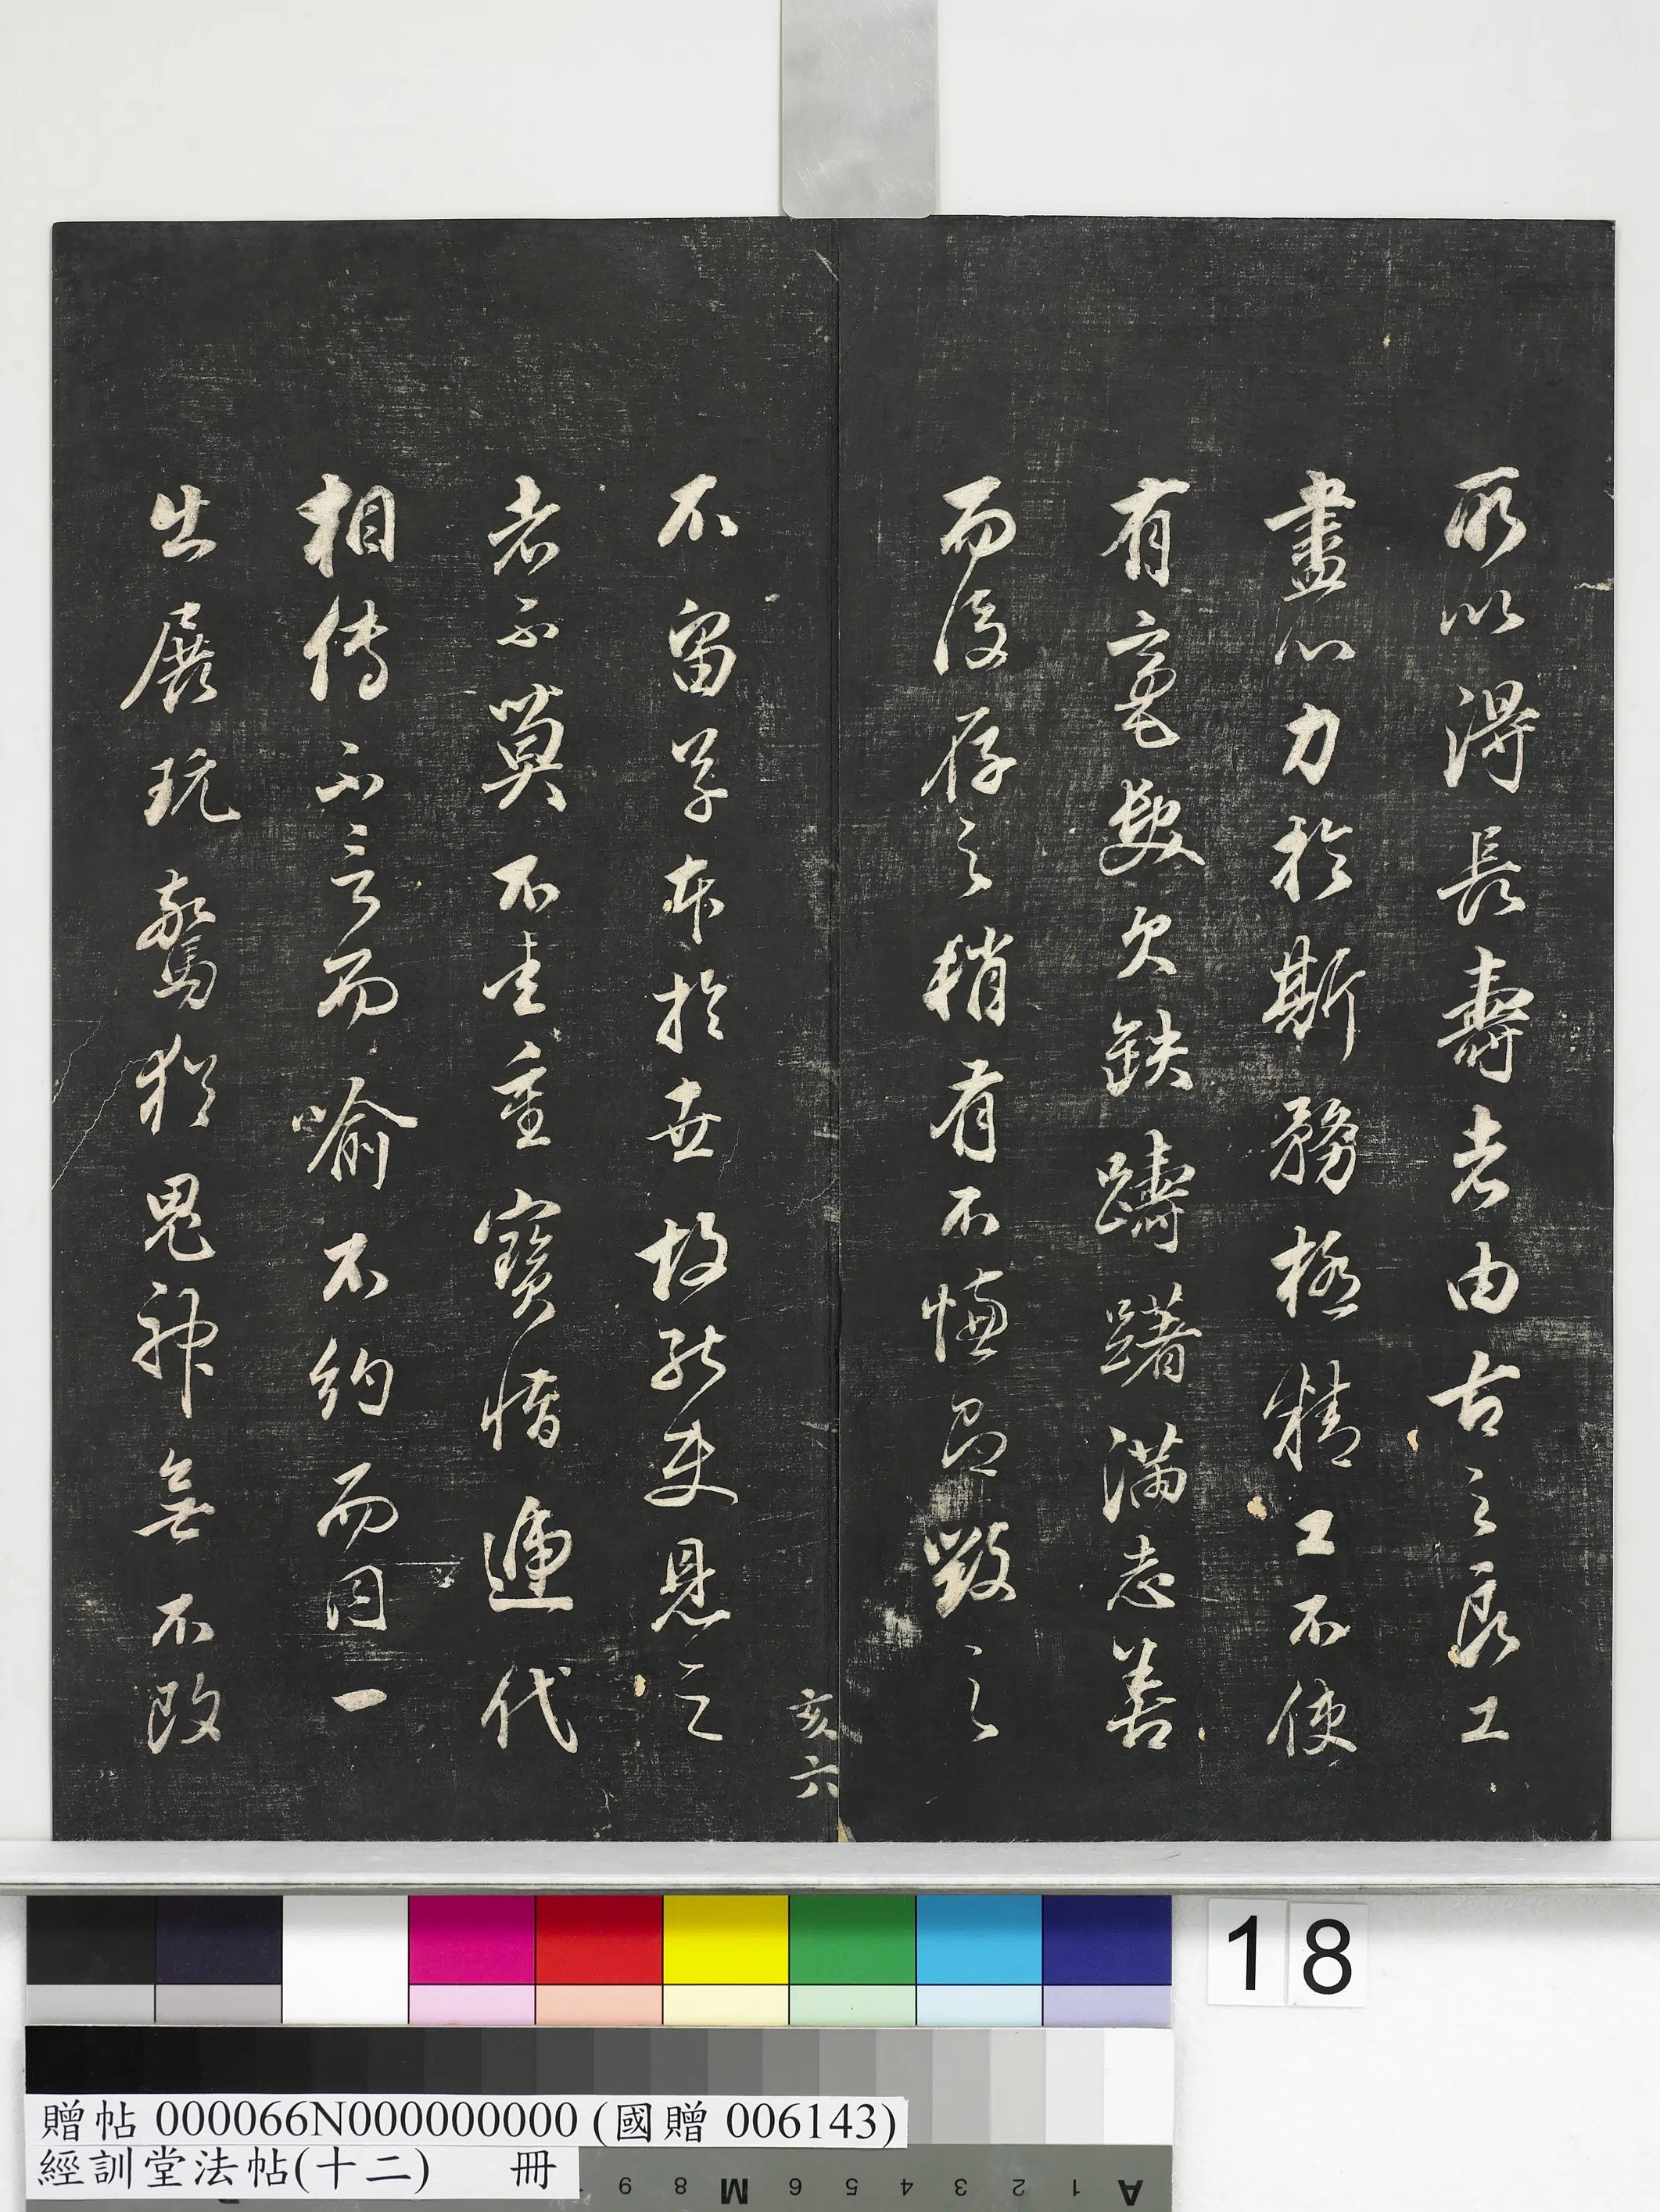 所以得長壽者由古之良工
盡心力於斯務極精工不使
有毫髮欠缺躊躇滿志善
而後存之稍有不慊即毀之
不留草本於世故能使見之
者莫不重寶惜遞代
相傳不言而喻不約而同一
出展玩驚猶鬼神無不改
亥六
18
贈帖 000066N000000000 (國贈 006143)
經訓堂法帖(十二) 冊
A 1 2 3 4 5 6 M 8 9